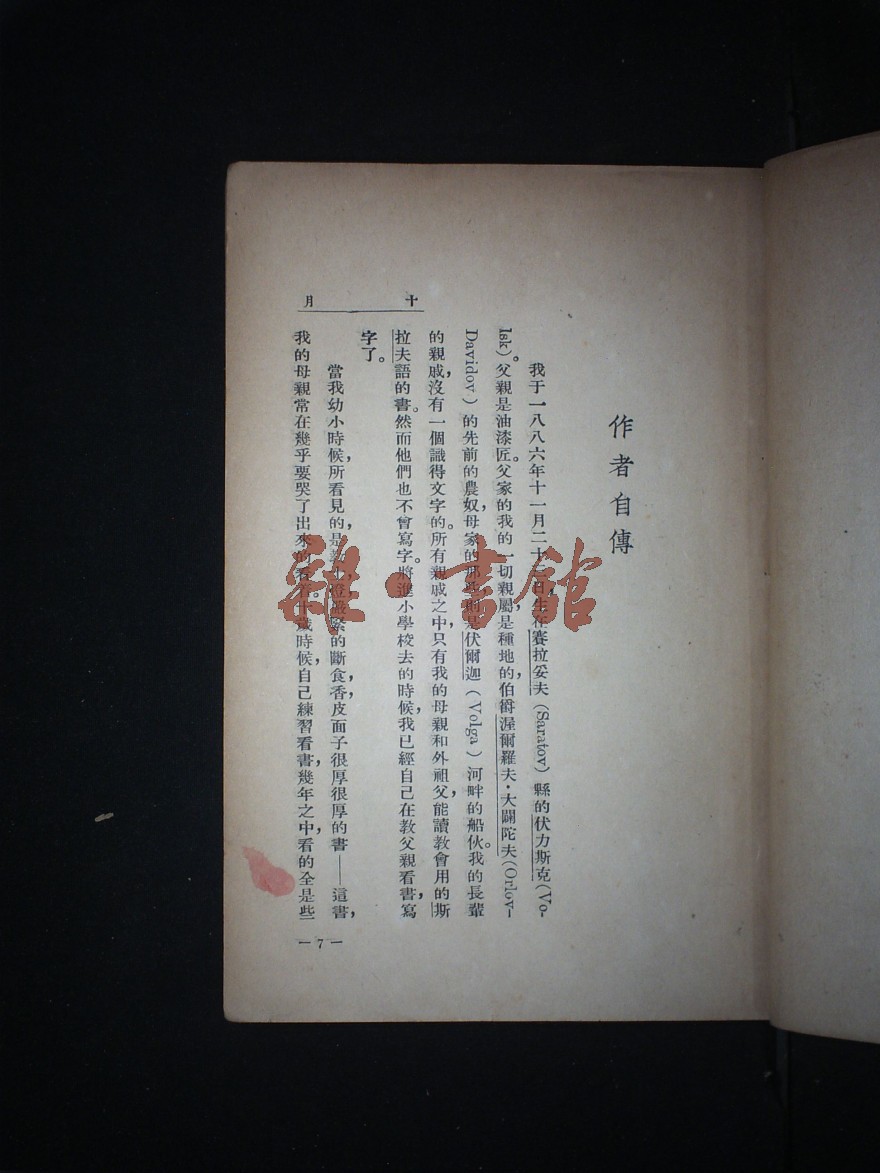 十月
作者自傳
我于一八八六年十一月二十二日，生在賽拉妥夫（Saratov）縣的伏力斯克（Vo-
lsk）。父親是油漆匠。父家的我的一切親屬，是種地的，伯爵渥爾羅夫·大闢陀夫（Orlov-
Davidov）的先前的農奴，母家的那些，則是伏爾迦（Volga）河畔的船伙。我的長輩
的親戚，沒有一個識得文字的。所有親戚之中，只有我的母親和外祖父，能讀教會用的斯
拉夫語的書。然而他們也不會寫字。將進小學校去的時候，我已經自己在教父親看書，寫
字了。
當我幼小時候，所看見的，是教士，燈，嚴緊的斷食，香，皮面子很厚很厚的書——這書，
我的母親常在幾乎要哭了出來的看着。十歲時候，自己練習看書，幾年之中，看的全是些
— 7 —
雜·書館